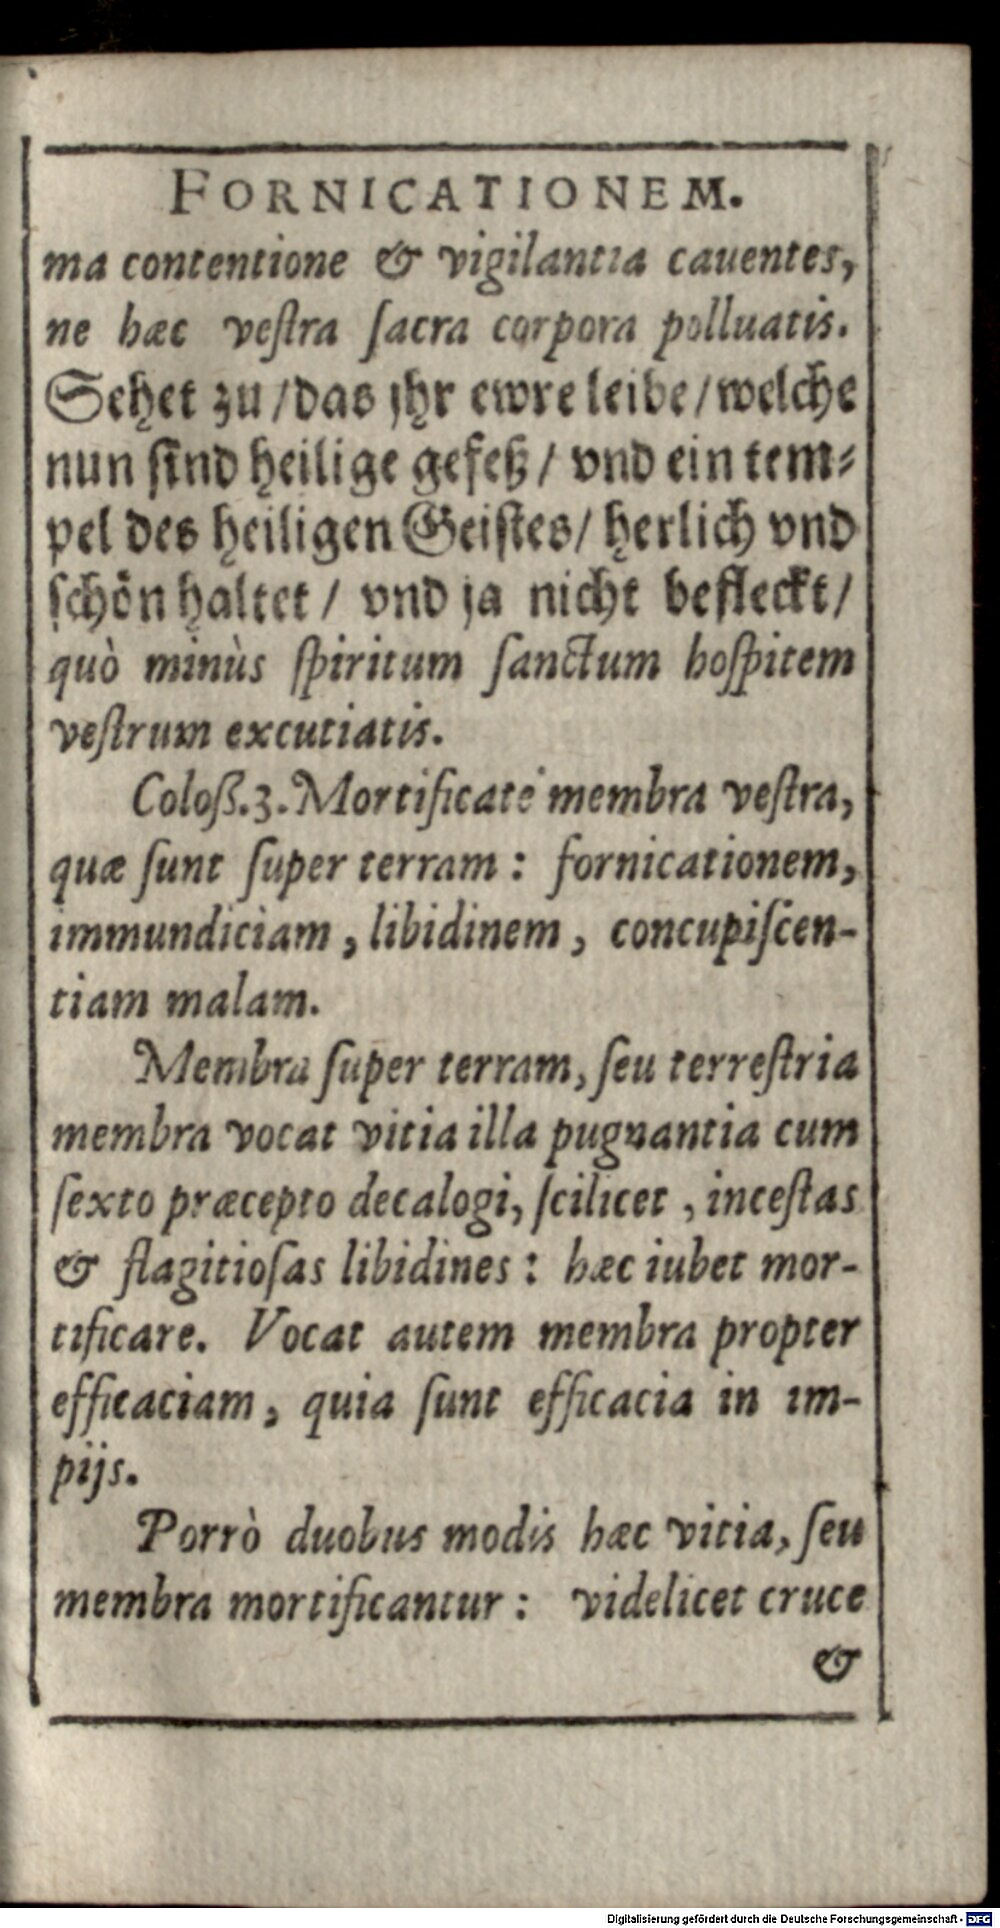 FORNICATIONEM.
ma contentione & vigilantia cauentes,
ne hæc vestra sacra corpora polluatis.
Sehet zu / das jhr ewre leibe / welche
nun sind heilige gefeß / vnd ein tem-
pel des heiligen Geistes / herlich vnd
schön haltet / vnd ja nicht befleckt /
quò minùs spiritum sanctum hospitem
vestrum excutiatis.
Coloß. 3. Mortificate membra vestra,
quæ sunt super terram: fornicationem,
immundiciam, libidinem, concupiscen-
tiam malam.
Membra super terram, seu terrestria
membra vocat vitia illa pugnantia cum
sexto præcepto decalogi, scilicet, incestas
& flagitiosas libidines: hæc iubet mor-
tificare. Vocat autem membra propter
efficaciam, quia sunt efficacia in im-
pijs.
Porrò duobus modis hæc vitia, seu
membra mortificantur: videlicet cruce
&
Digitalisierung gefördert durch die Deutsche Forschungsgemeinschaft - DFG